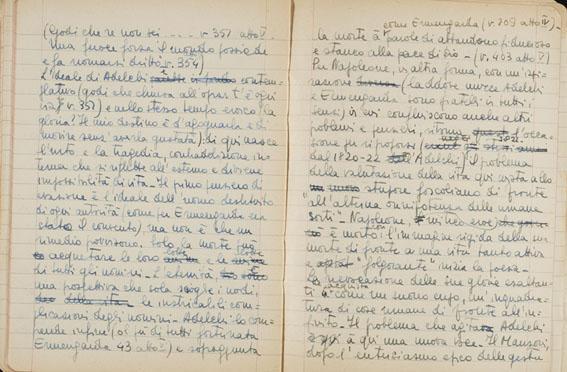 (Godi che re non sei ..... v. 351 atto V.
Una feroce forza il mondo possiede
e fa nomarsi dritto v. 354)
L'ideale di Adelchi contem-
plativo (godi che chiusa all'oprar t'è ogni
via v. 351) e nello stesso tempo eroico (la
gloria? il mio destino è d'agognarla e di
morire senz'averla gustata): di qui nasce
l'urto e la tragedia, contraddizione in-
terna che si riflette all'esterno e diviene
impossibilità di vita. Il primo pensiero di
evasione è l'ideale dell'uomo destituito
di ogni autorità (come fu Ermengarda
stato il convento), ma non è che un
rimedio provvisorio. Solo la morte può
acquetare le loro e le
di tutti gli uomini. L'eternità
una prospettiva che sola scioglie i nodi,
le inestricabili com-
plicazioni degli uomini. Adelchi lo com-
prende infine (oi fu di tutti fortunata
Ermengarda 43 atto V) e sopraggiunta
come Ermengarda (v. 209 atto IV)
la morte à parole di abbandono fiducioso
e stanco alla pace di Dio (v. 403 atto V)
Per Napoleone, in altra forma, con un'ispi-
razione (laddove invece Adelchi
e Ermengarda sono fratelli in tutti i
sensi) in cui confluiscono anche altri
problemi e pensieri, ritorna l'occa-
sione fu si proposi
dal 1820-22 Adelchi) il problema
della valutazione della vita qui vista allo
stupore foscoliano di fronte
"all'alterna onnipotenza delle umane
sorti". Napoleone, (unico eroe)
è morto: l'immagine rigida della sua
morte di fronte a una vita tanto attiva
e "folgorante" inizia la poesia.
La rievocazione delle sue glorie esaltan-
ti à come un suono cupo, un'inquadra-
tura di cose umane di fronte all'in-
finito. Il problema che agitava Adelchi
à qui una nuova voce. Il Manzoni,
dopo l'entusiasmo epico delle gesta